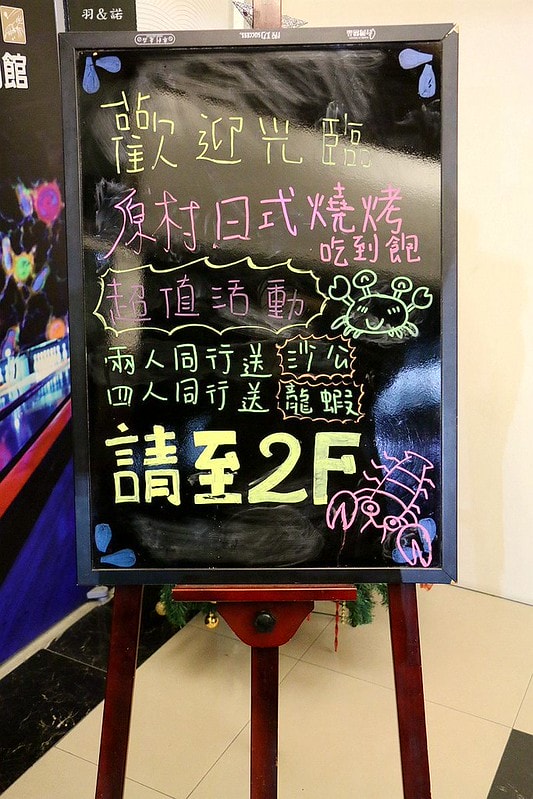 羽&諾
館
SUCCESS
歡迎光臨
原村日式燒烤
吃到飽
超值活動
兩人同行送沙公
四人同行送龍蝦
請至2F